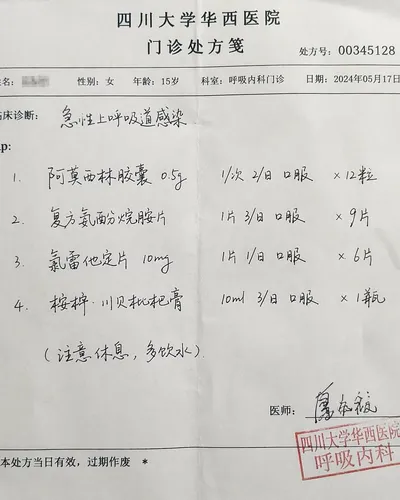 四川大学华西医院
门诊处方笺
处方号: 00345128
名: 性别: 女 年龄: 15岁 科室: 呼吸内科门诊 日期: 2024年05月17日
床诊断: 急性上呼吸道感染
p:
1. 阿莫西林胶囊 0.5g 1/次 2/日 口服 ×12粒
2. 复方氨酚烷胺片 1片 3/日 口服 ×9片
3. 氯雷他定片 10mg 1片 1/日 口服 ×6片
4. 桉柠·川贝枇杷膏 10ml 3/日 口服 ×1瓶
(注意休息, 多饮水).
医师:
四川大学华西医院
呼吸内科
本处方当日有效, 过期作废 *